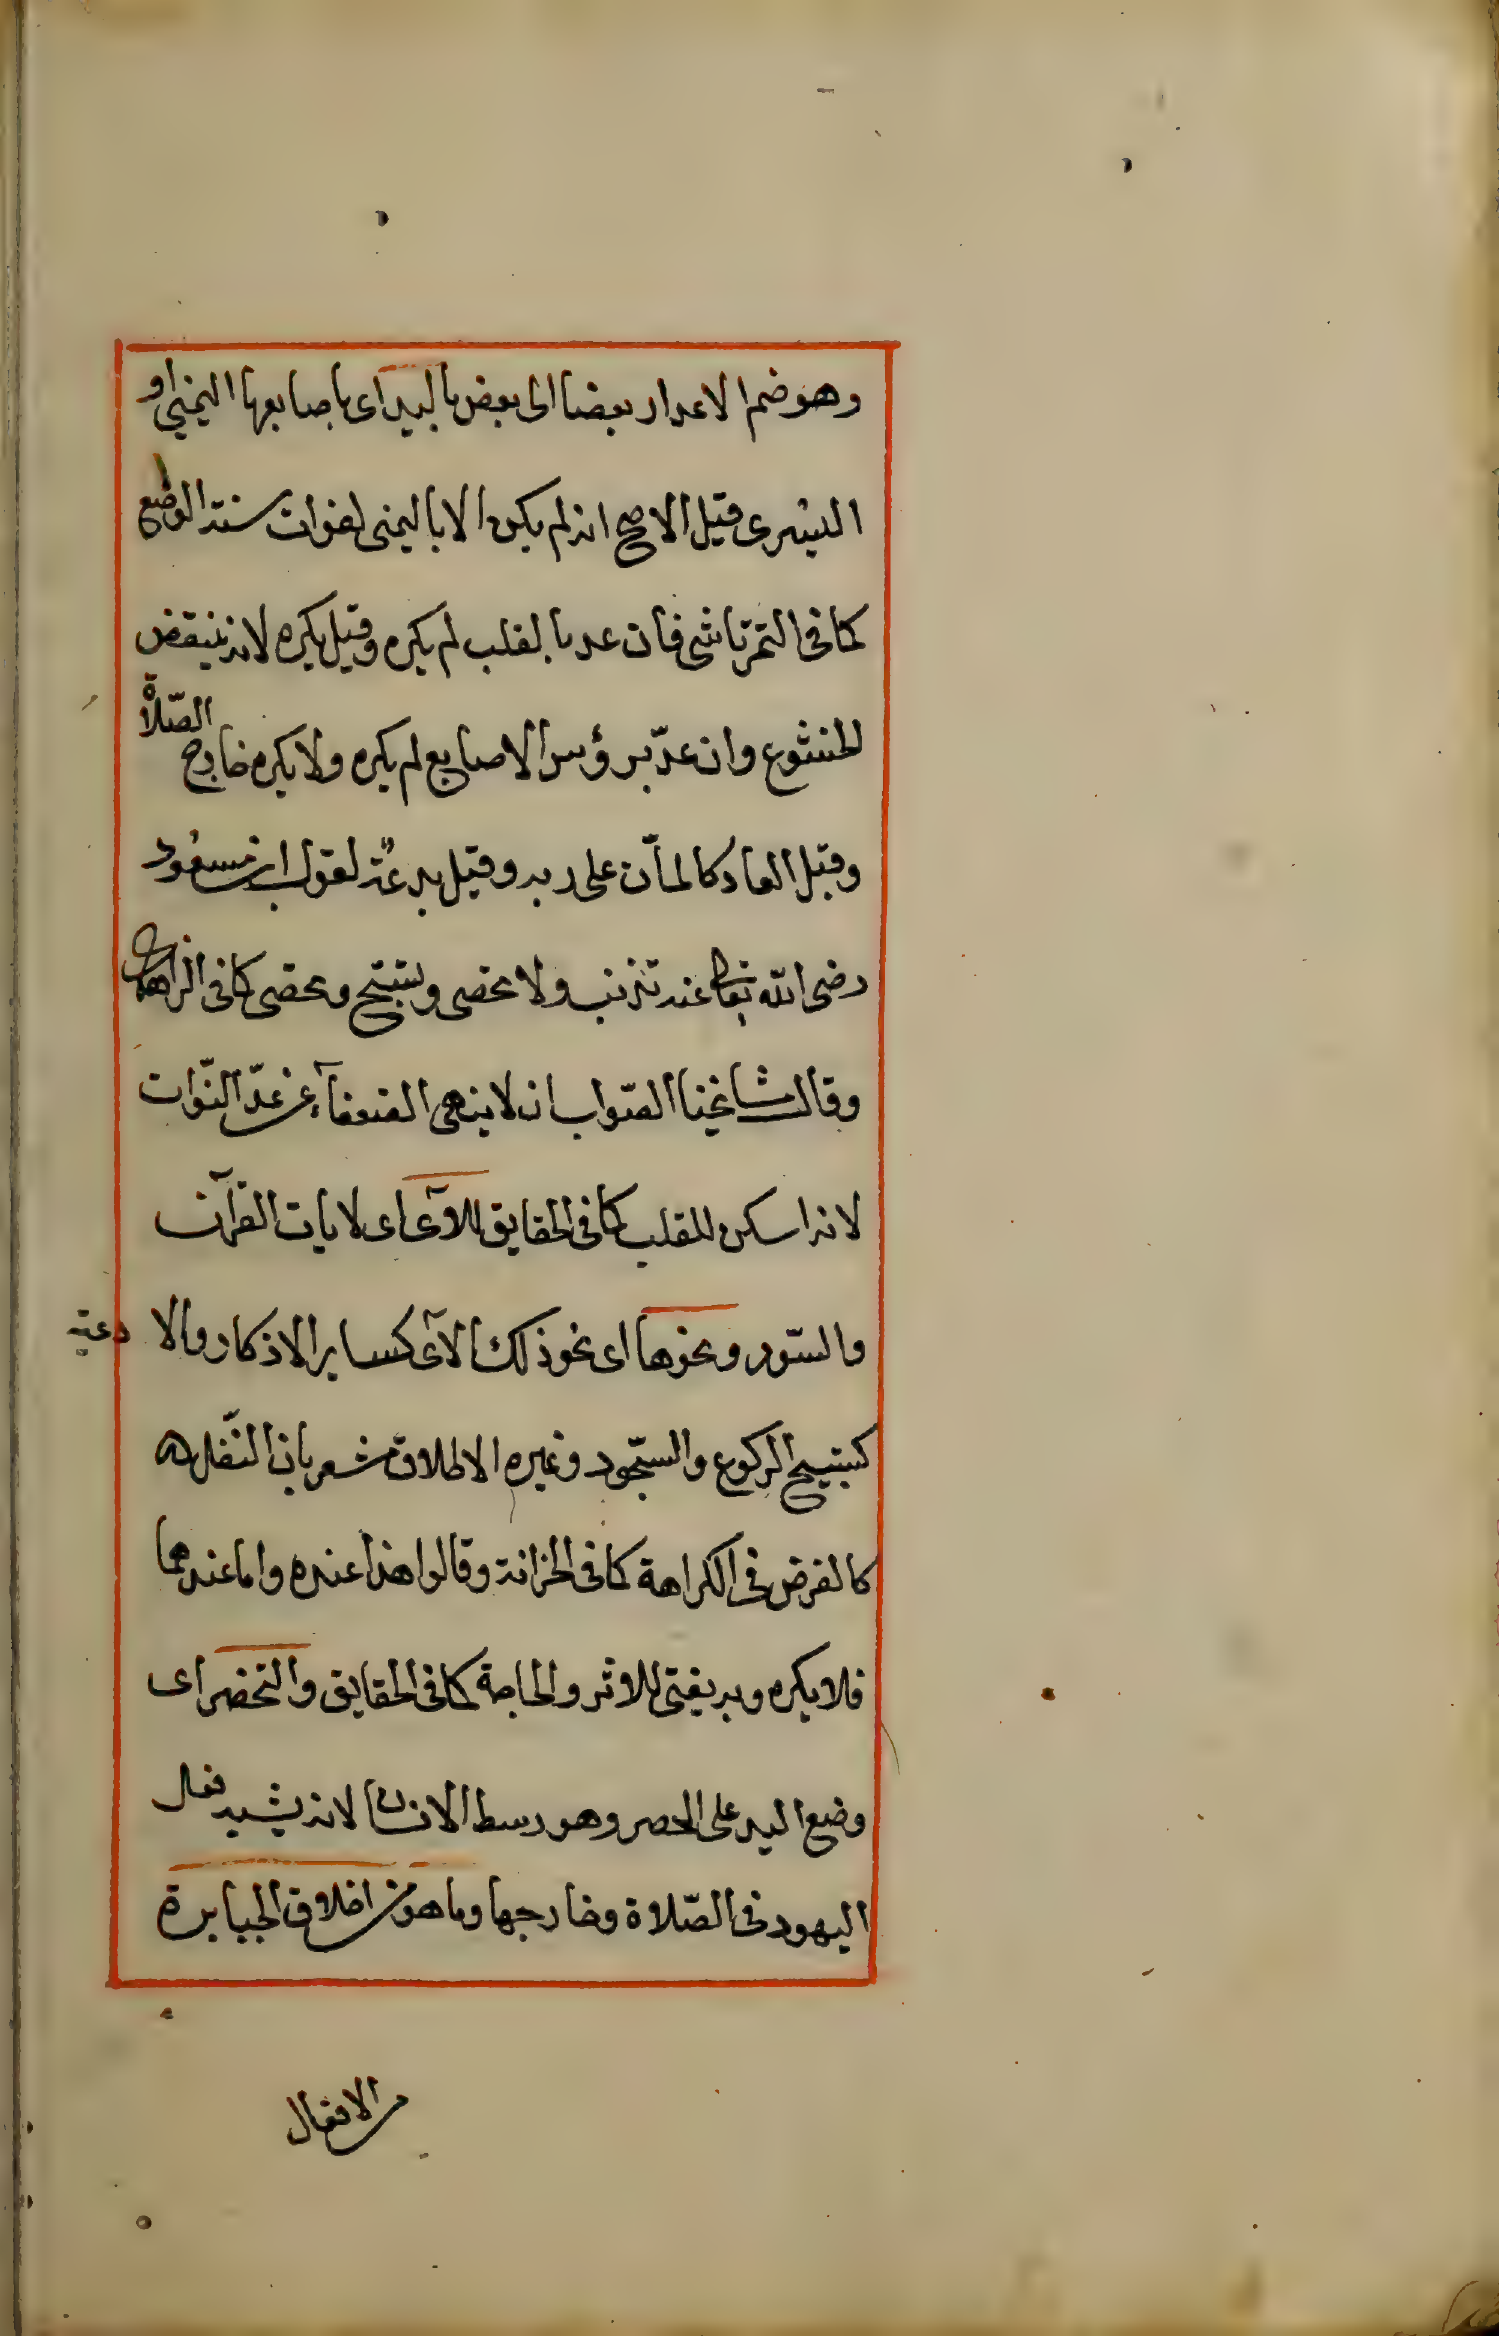 وهو ضم الاعداد بعضا الى بعض باليد اى باصابعها اليمنى او
اليسرى قيل الاصح انه لم يكره الا باليمنى لفوات سنة الوضع
كما فى التمرتاشى فان عد بالقلب لم يكره وقيل يكره لانه ينقض
الخشوع وان عدّ برؤس الاصابع لم يكره ولا يكره خارج الصّلاة
وقيل العاد كالمآن على ربه وقيل بدعة لقول ابن مسعود
رضى الله تعالى عنه تذنب ولا تحصى وتسبّح وتحصى كما فى الزاهدى
وقال مشايخنا الصّواب ان لا ينهى الضعفآء عن عدّ النّوات
لانه اسكن للقلب كما فى الحقايق للآى اى لايات القرآن
والسّور ونحوها اى نحو ذلك الآى كساير الاذكار والادعية
كتسبيح الركوع والسّجود وغيره الاطلاق مشعر بان النّفل
كالفرض فى الكراهة كما فى الخزانة وقالوا هذا عنده واما عندهما
فلا يكره وبه يفتى للاثر والحاجة كما فى الحقايق والتخصر اى
وضع اليد على الخصر وهو وسط الانسان لانه يشبه فعال
اليهود فى الصّلاة وخارجها وما هو من اخلاق الجبابرة
من الافعال